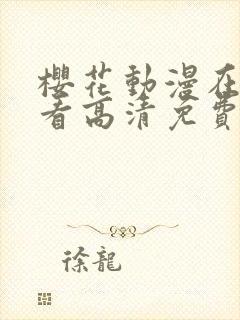 櫻花動漫在
看高清免費
徐龍